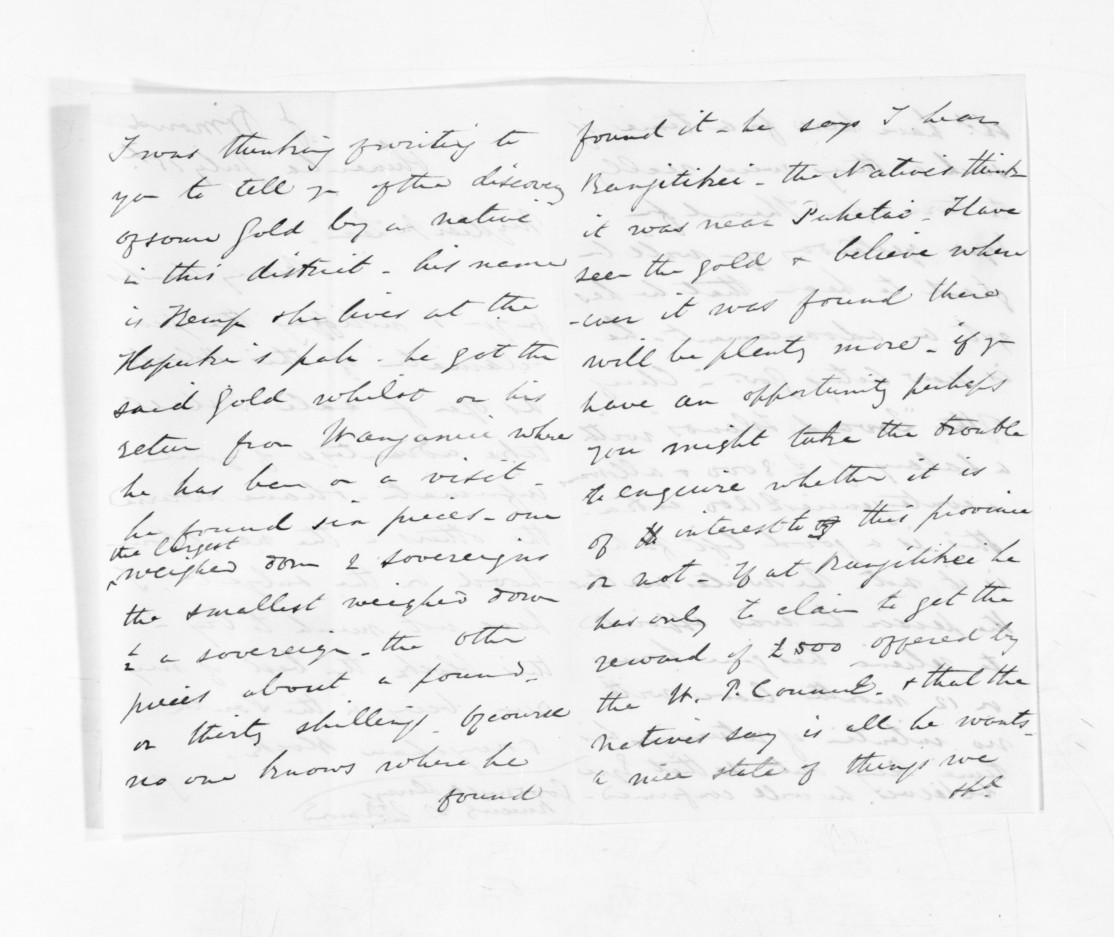 I was thinking of writing to
you to tell yr of the discovery
of some Gold by a native
in this district - his name
is Kemp & he lives at the
Hapuku's pah - he got the
said Gold whilst on his
return from Wanganui where
he has been on a visit -
he found six pieces - one
the largest
weighed down 2 sovereigns
the smallest weighed down
½ a sovereign - the other
pieces about a pound -
or thirty shillings. Of course
no one knows where he
found
found it - he says I hear
Rangitikei - the Natives think
it was near Puketai - I have
seen the gold & believe where
-ever it was found there
will be plenty more - if yr
have an opportunity perhaps
you might take the trouble
to enquire whether it is
of interest to this province
or not - If at Rangitikei he
has only to claim to get the
reward of £500 offered by
the W. P. Council - & that the
natives say is all he wants -
a nice state of things we
shd